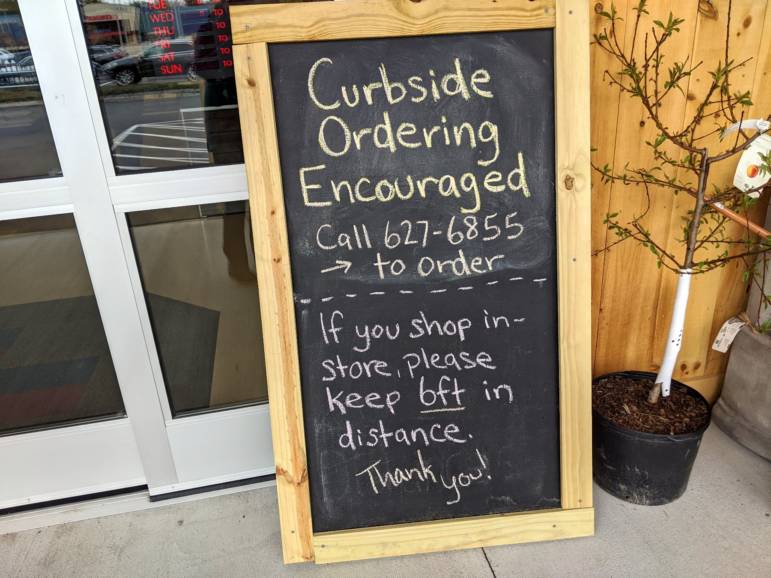 TUE
WED
THU
FRI
SAT
SUN
TO
TO
TO
Curbside
Ordering
Encouraged
Call 627-6855
→ to order
If you shop in-
store, please
keep 6ft in
distance.
Thank you!